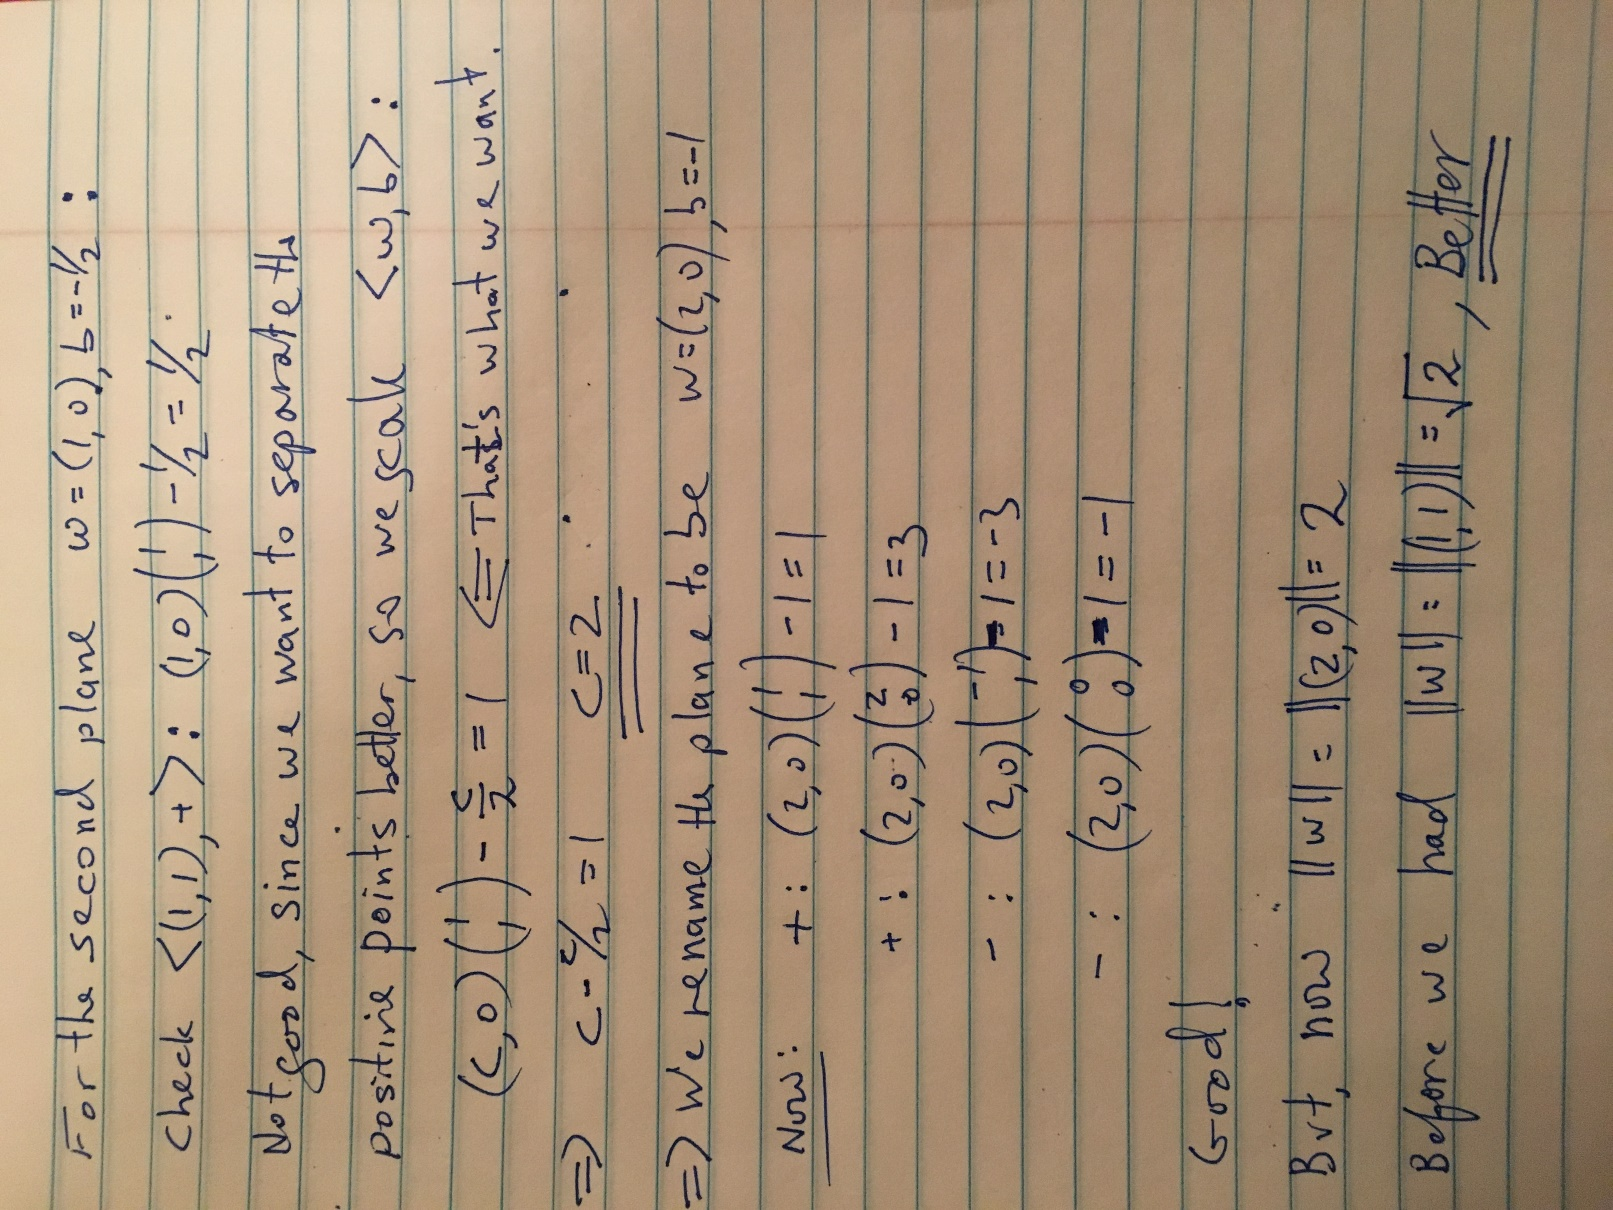 For the second plane w=(1,0), b=-1/2 :
Check <(1,1),+>: (1,0)(1 1)-1/2=1/2.
Not good, since we want to separate the
positive points better, so we scale <w,b>:
(c,0)(1 1)-c/2=1 <= That's what we want.
=> c-c/2=1 c=2
=> We rename the plane to be w=(2,0), b=-1
Now: +: (2,0)(1 1)-1=1
+: (2,0)(2 0)-1=3
-: (2,0)(-1 1)-1=-3
-: (2,0)(0 0)-1=-1
Good!
But, now ||w||=||(2,0)||=2
Before we had ||w||=||(1,1)||=√2, Better